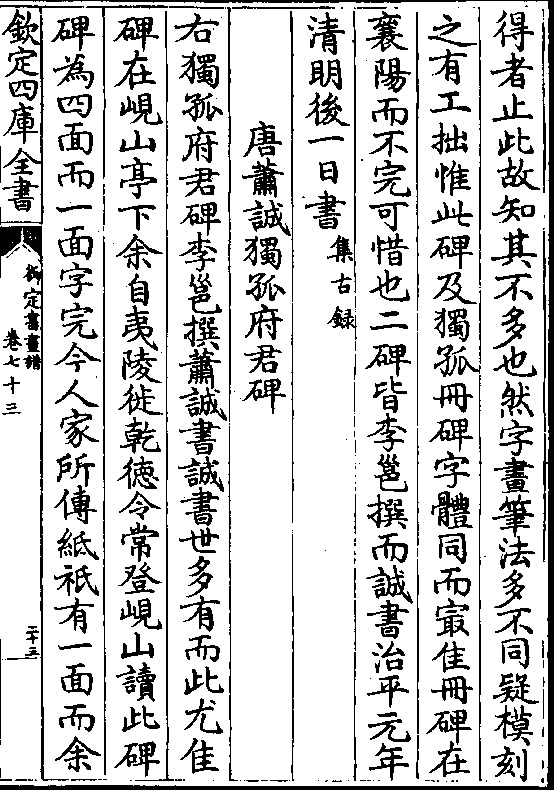 得者止此故知其不多也然字畫筆法多不同疑模刻
之有工拙惟此碑及獨孤冊碑字體同而㝡佳冊碑在
襄陽而不完可惜也二碑皆李邕撰而誠書治平元年
清明後一日書集古録
唐蕭誠獨孤府君碑
右獨孤府君碑李邕撰蕭誠書誠書世多有而此尤佳
碑在峴山亭下余自夷陵徙乾徳令常登峴山讀此碑
碑為四面而一面字完今人家所傳紙祇有一面而余
欽定四庫全書
御定書畫譜
卷七十三
二十三